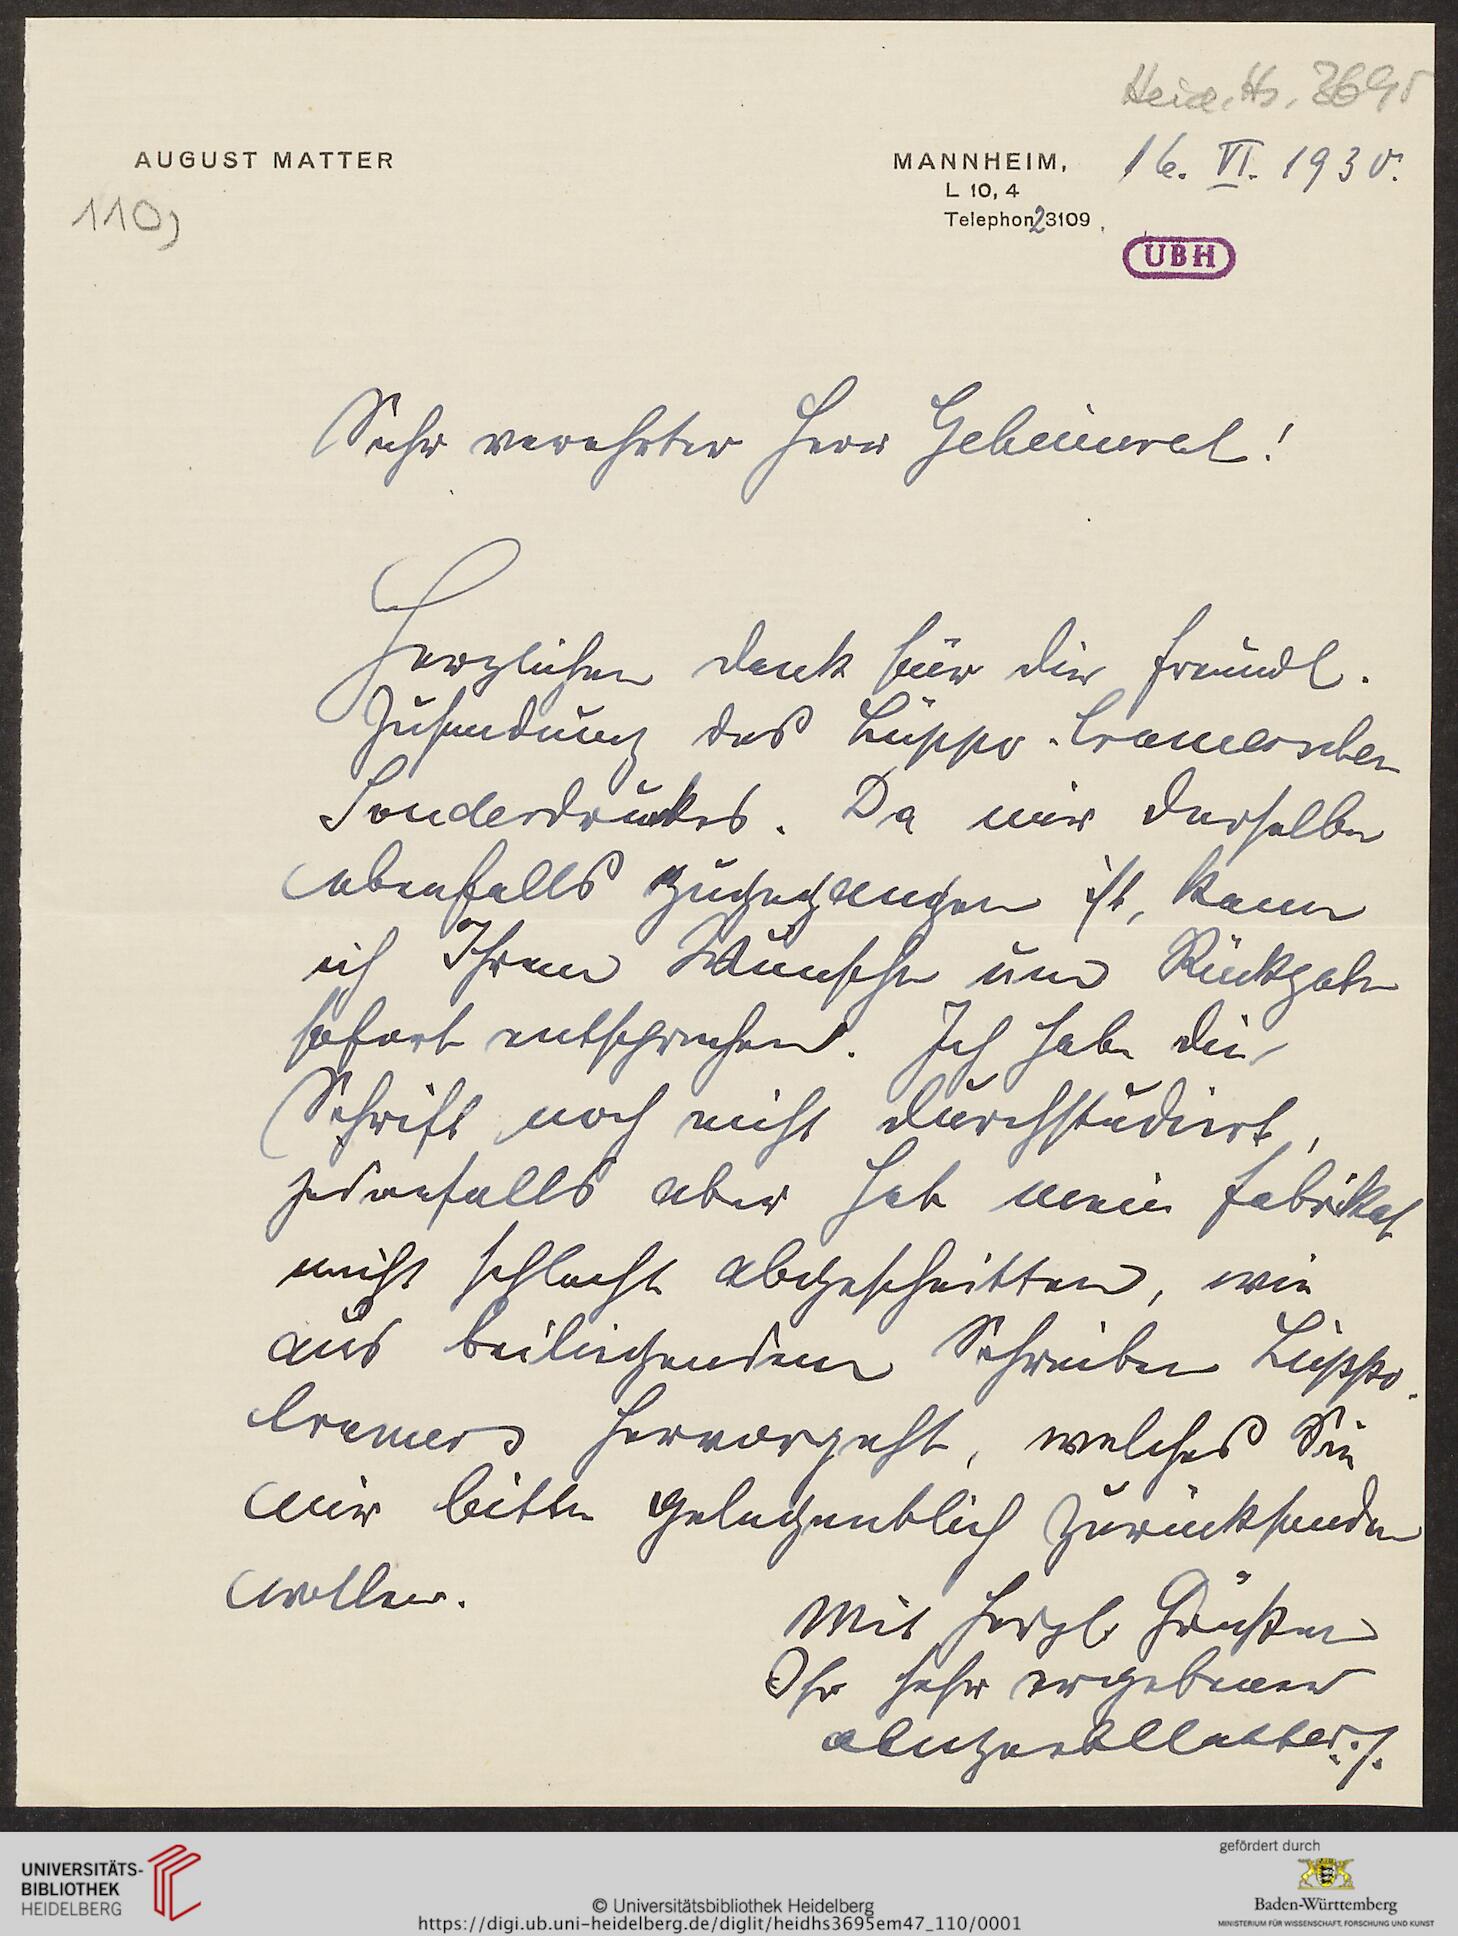 Heid. Hs. 3695
AUGUST MATTER
MANNHEIM, 16. VI. 1930.
L 10, 4
Telephon 23109
110)
UBH
Sehr verehrter Herr Geheimrat!
Herzlichen Dank für die freundl.
Zusendung des Lüppo-Cramerschen
Sonderdruckes. Da mir derselbe
ebenfalls zugegangen ist, kann
ich Ihrem Wunsche um Rückgabe
sofort entsprechen. Ich habe die
Schrift noch nicht durchstudiert,
jedenfalls aber hat mein Fabrikat
nicht schlecht abgeschnitten, wie
aus beiliegendem Schreiben Lüppo-
Cramers hervorgeht, welches Sie
mir bitte gelegentlich zurücksenden
wollen.
Mit herzl. Grüßen
Ihr sehr ergebener
August Matter
UNIVERSITÄTS-
BIBLIOTHEK
HEIDELBERG
© Universitätsbibliothek Heidelberg
https://digi.ub.uni-heidelberg.de/diglit/heidhs3695em47_110/0001
gefördert durch
Baden-Württemberg
MINISTERIUM FÜR WISSENSCHAFT, FORSCHUNG UND KUNST